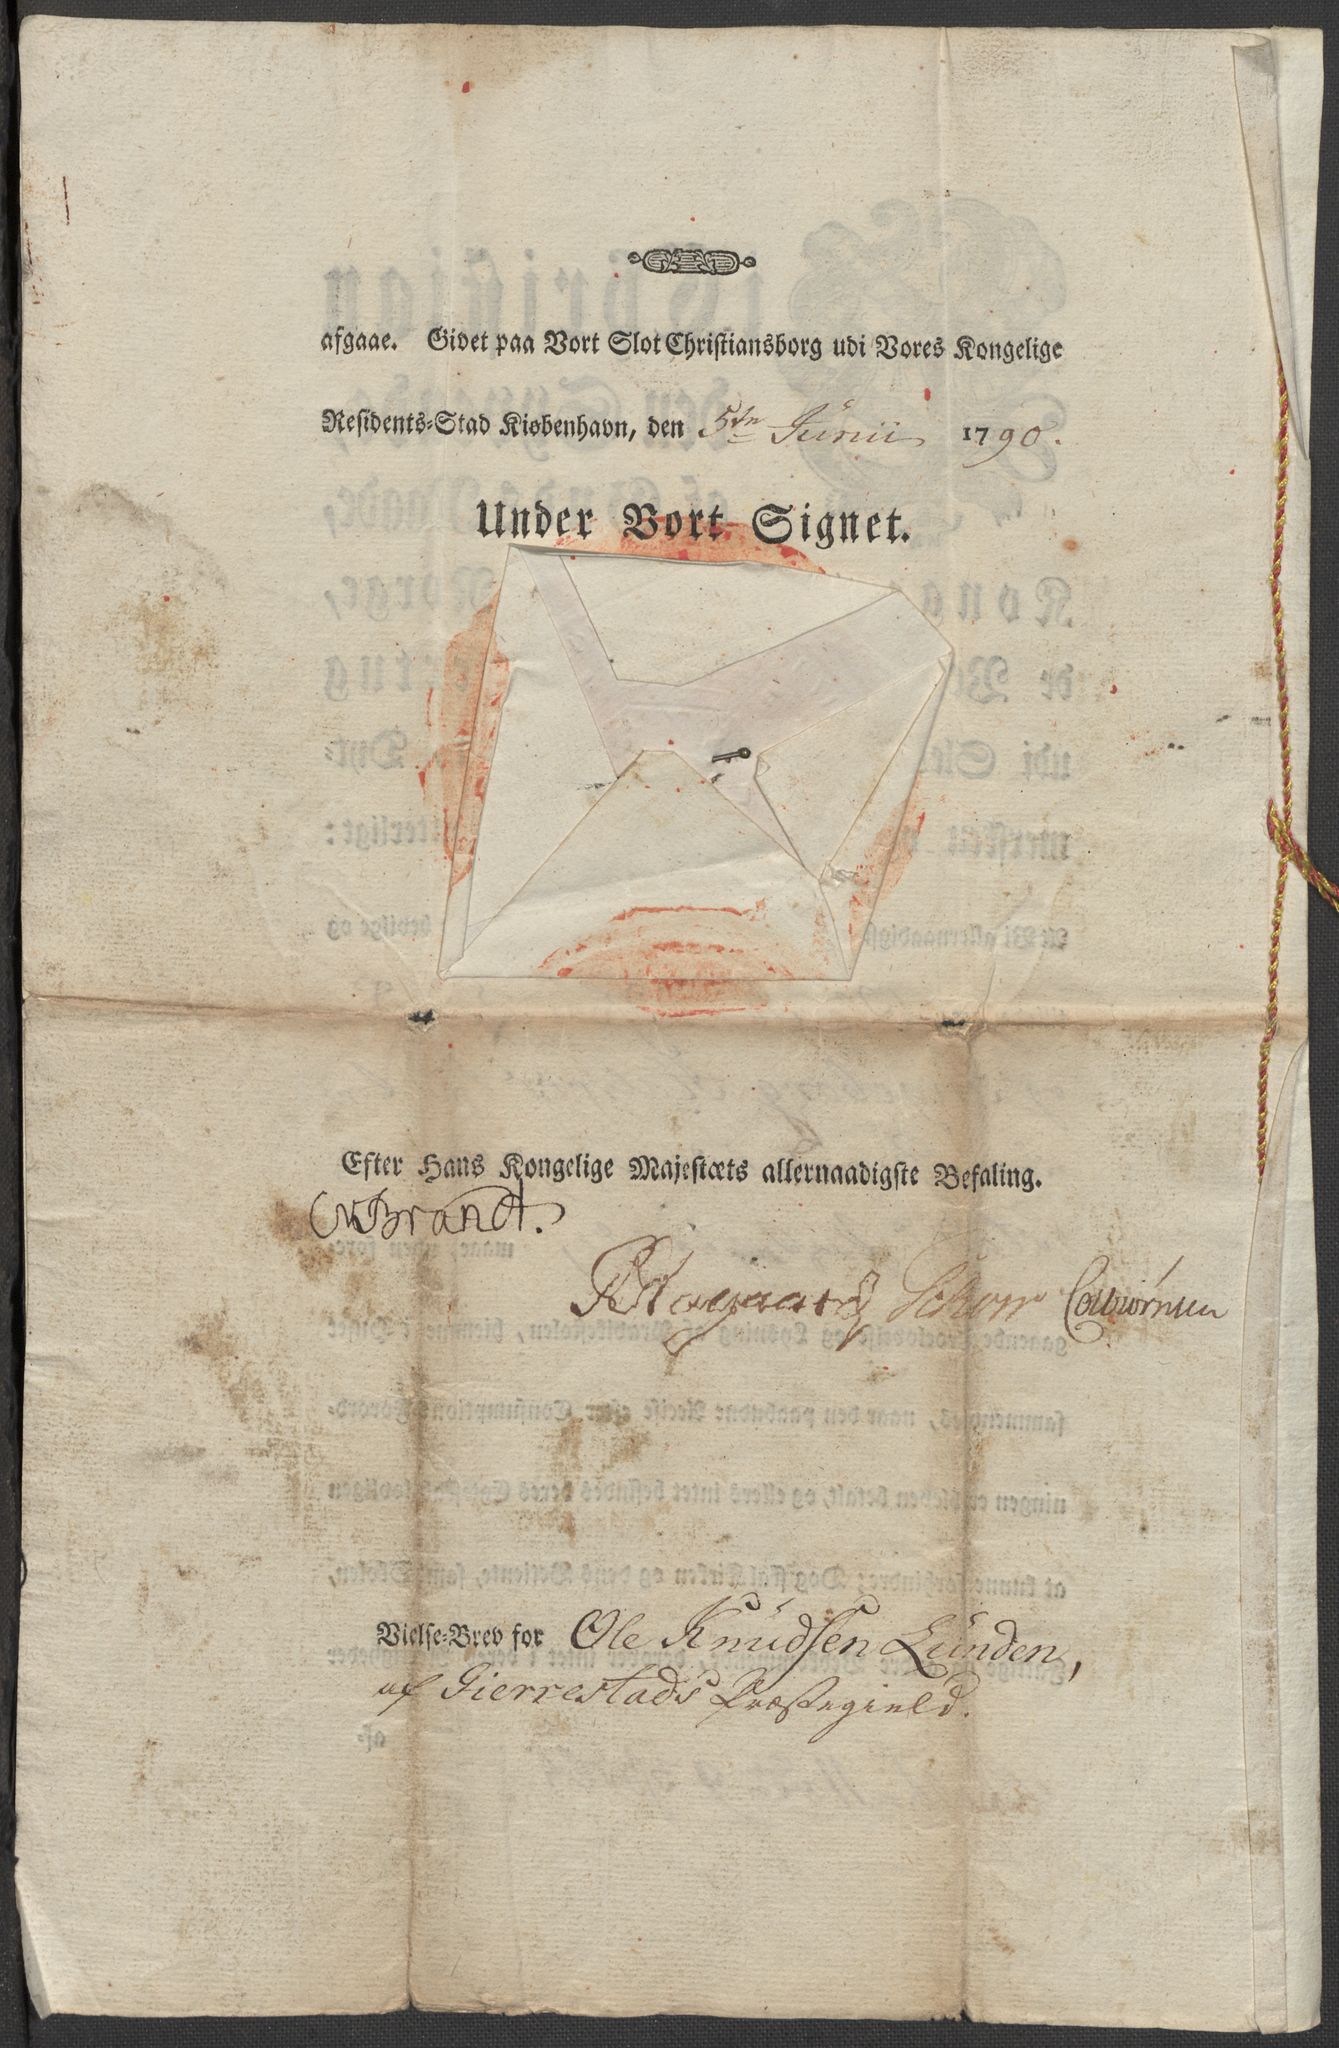 afgaae. Givet paa Vort Slot Christiansborg udi Vores Kongelige
Residents-Stad Kiøbenhavn, den 5te Junii 1790.
Under Vort Signet.
Efter Hans Kongelige Majestæts allernaadigste Befaling.
CVBrandt.
Aagaard Schow Colbiørnsen
Vielse-Brev for Ole Knudsen Lunden,
af Gierrestads Præstegield.